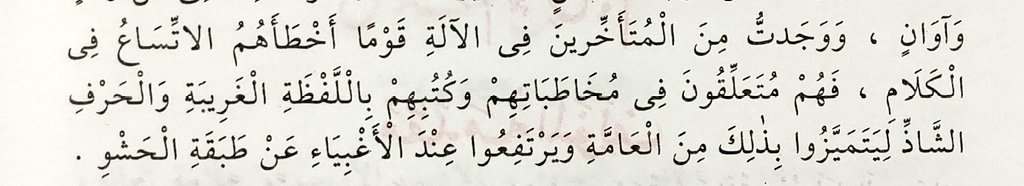 وَآوَانٍ ، وَوَجَدتُّ مِنَ الْمُتَأَخِّرينَ فِى الآلَةِ قَوْمًا أَخْطَأَهُمُ الاتِّسَاعُ فِى
الْكَلَامِ ، فَهُمْ مُتَعَلِّقُونَ فِى مُخَاطَبَاتِهِمْ وَكُتُبِهِمْ بِاللَّفْظَةِ الْغَرِيبَةِ وَالْحَرْفِ
الشَّاذِّ لِيَتَمَيَّزُوا بِذٰلِكَ مِنَ الْعَامَّةِ وَيَرْتَفِعُوا عِنْدَ الْأَغْبِيَاءِ عَنْ طَبَقَةِ الْحَشْوِ .